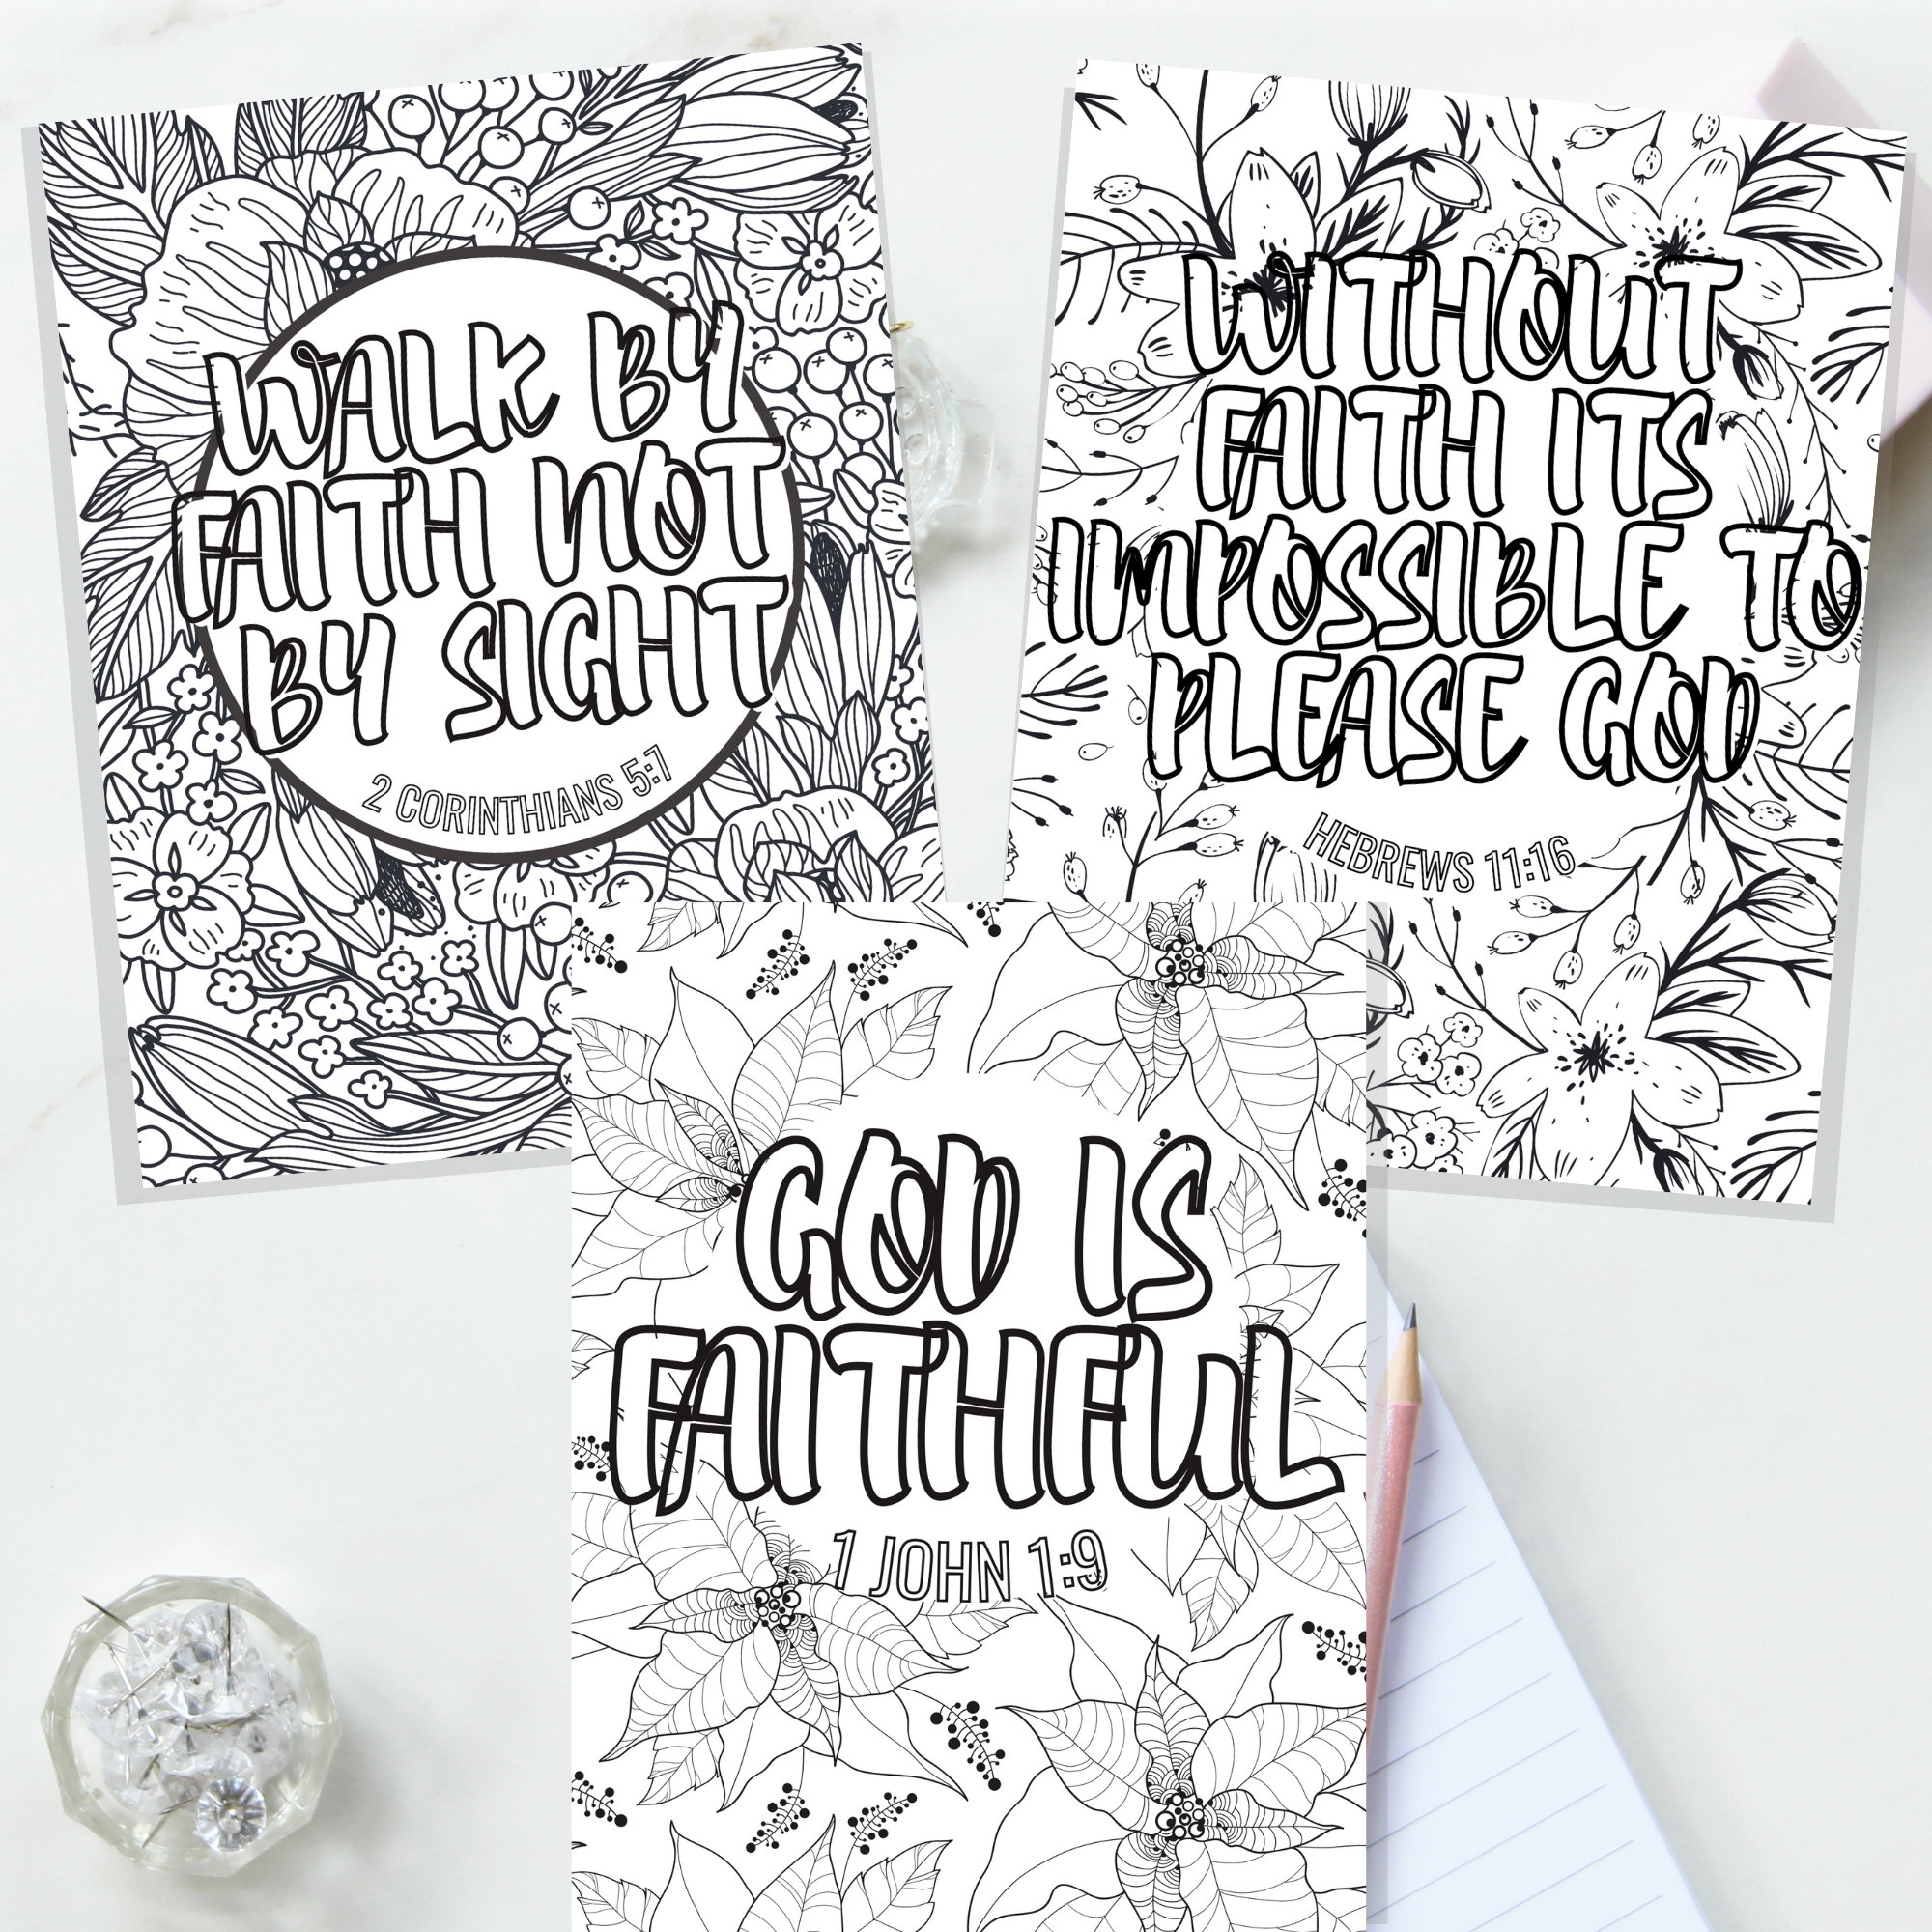 WALK BY
FAITH NOT
BY SIGHT
2 CORINTHIANS 5:7
WITHOUT
FAITH ITS
IMPOSSIBLE TO
PLEASE GOD
HEBREWS 11:16
GOD IS
FAITHFUL
1 JOHN 1:9